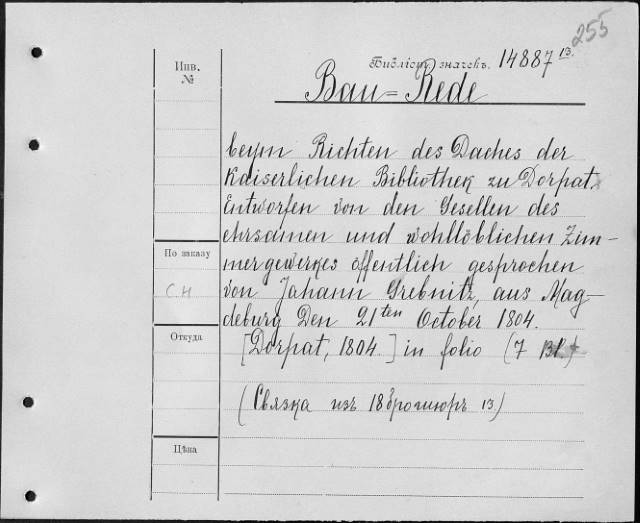 255
Инв.
№
Библіот. значекъ. 14887 13.
Bau=Rede
beym Richten des Daches der
Kaiserlichen Bibliothek zu Dorpat
Entworfen von den Gesellen des
ehrsamen und wohllöblichen Zim-
mergewerkes öffentlich gesprochen
von Johann Grebnitz, aus Mag-
deburg Den 21ten October 1804.
[Dorpat, 1804.] in folio (7
(Связка изъ 18 брошюръ 13)
По заказу
С.Н
Откуда
Цѣна